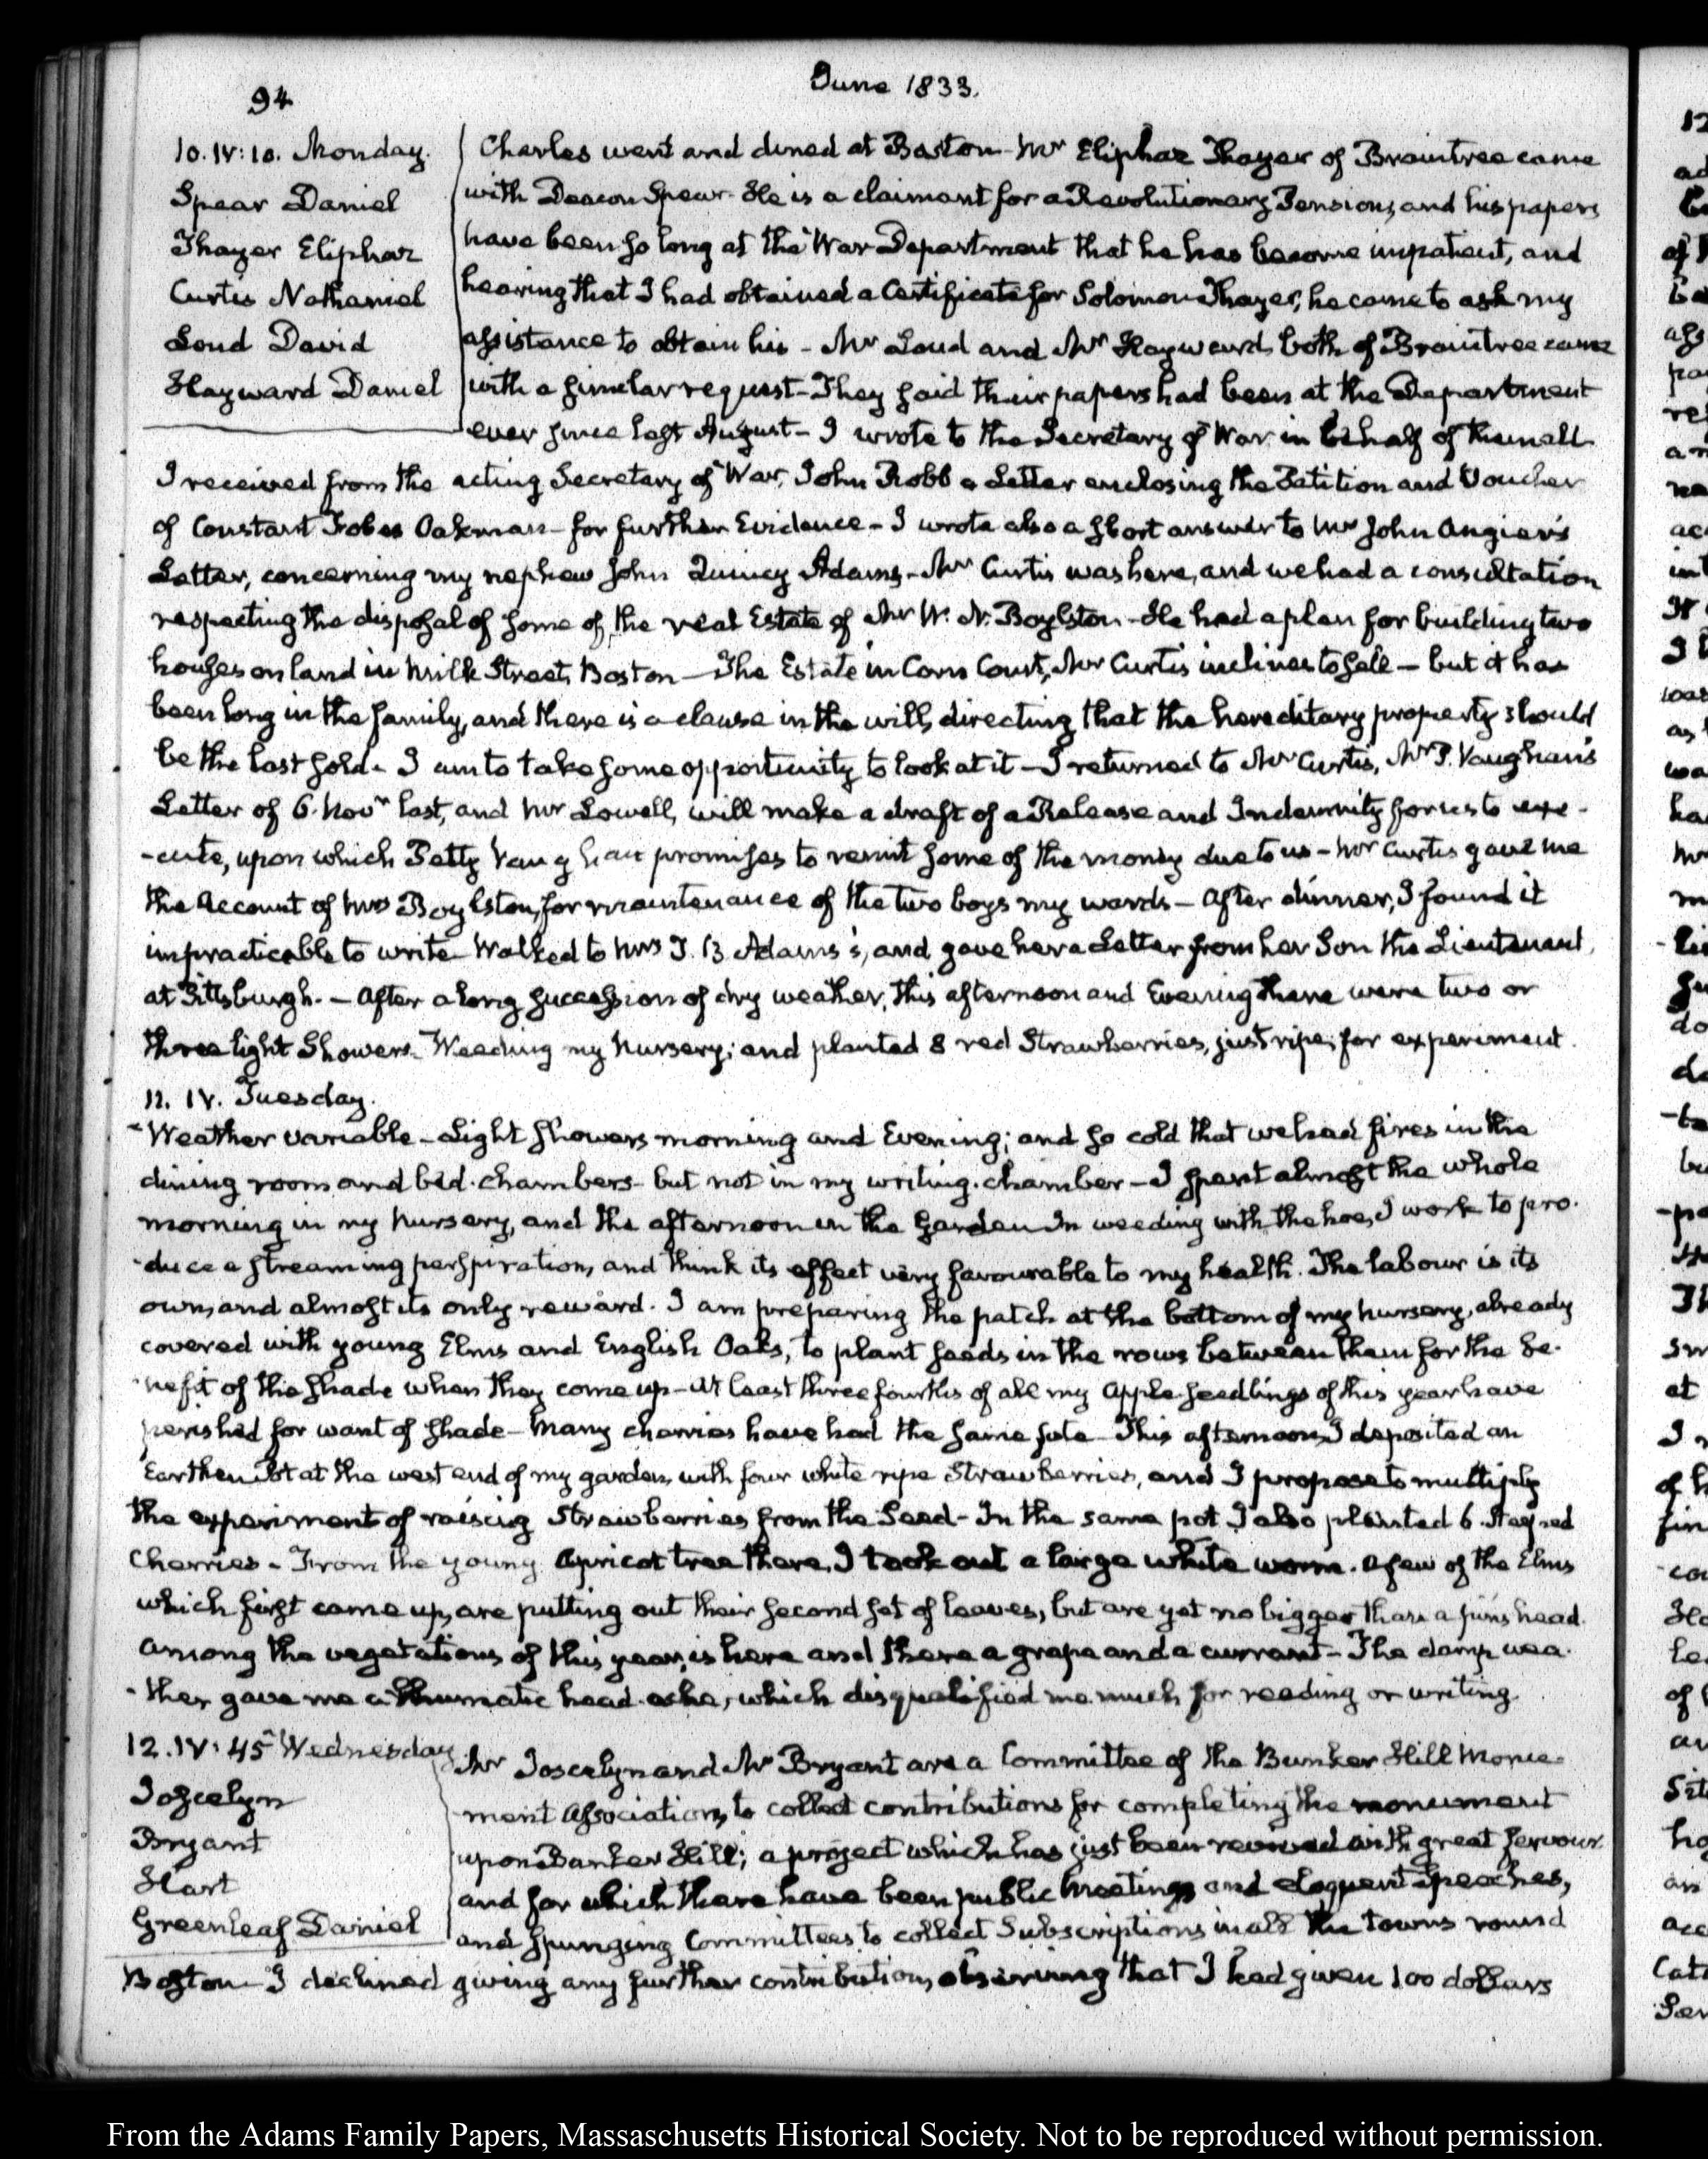 94
June 1833.
10. IV:10. Monday.
Spear Daniel
Thayer Eliphaz
Curtis Nathaniel
Loud David
Hayward Daniel
Charles went and dined at Boston. Mr Eliphaz Thayer of Braintree came
with Deacon Spear. He is a claimant for a Revolutionary Pension, and his papers
have been so long at the War Department that he has become impatient, and
hearing that I had obtained a Certificate for Solomon Thayer, he came to ask my
assistance to obtain his - Mr Loud and Mr Hayward, both of Braintree came
with a similar request - They said their papers had been at the Department
ever since last August - I wrote to the Secretary of War in behalf of them all
I received from the acting Secretary of War, John Robb a Letter enclosing the Petition and Voucher
of Constant Fobes Oakman - for further Evidence - I wrote also a short answer to Mr John Angier's
Letter, concerning my nephew John Quincy Adams - Mr Curtis was here, and we had a consultation
respecting the disposal of some of the real Estate of Mr W. N. Boylston - He had a plan for building two
houses on land in Milk Street, Boston - The Estate in Corn Court, Mr Curtis inclines to sell - but it has
been long in the family, and there is a clause in the will, directing that the hereditary property should
be the last sold - I am to take some opportunity to look at it - I returned to Mr Curtis, Mr P. Vaughan's
Letter of 6. Novr last, and Mr Lowell, will make a draft of a Release and Indemnity for us to exe-
-cute, upon which Petty Vaughan promises to remit some of the money due to us - Mr Curtis gave me
the Account of Mrs Boylston, for maintenance of the two boys my wards - After dinner, I found it
impracticable to write. Walked to Mrs T. B. Adams's, and gave her a Letter from her Son the Lieutenant,
at Pittsburgh. - After a long succession of dry weather, this afternoon and Evening there were two or
three light Showers. Weeding my Nursery; and planted 8 red Strawberries, just ripe, for experiment.
11. IV. Tuesday.
Weather variable - Light showers morning and Evening; and so cold that we had fires in the
dining room and bed-chambers - but not in my writing-chamber - I spent almost the whole
morning in my Nursery, and the afternoon in the Garden. In weeding with the hoe, I work to pro-
-duce a streaming perspiration, and think its effect very favourable to my health. The labour is its
own, and almost its only reward. I am preparing the patch at the bottom of my nursery, already
covered with young Elms and English Oaks, to plant seeds in the rows between them for the be-
-nefit of the shade when they come up - At least three fourths of all my Apple-seedlings of this year have
perished for want of shade - Many cherries have had the same fate - This afternoon, I deposited an
Earthen Pot at the west end of my garden, with four white ripe Strawberries, and I propose to multiply
the experiment of raising Strawberries from the Seed - In the same pot I also planted 6 red
Cherries - From the young Apricot tree there, I took out a large white worm. A few of the Elms
which first came up, are putting out their second set of leaves, but are yet no bigger than a pins head.
Among the vegetations of this year, is here and there a grape and a currant - The damp wea-
-ther gave me a rheumatic head-ache, which disqualified me much for reading or writing.
12. IV:45 Wednesday
Joscelyn
Bryant
Hart
Greenleaf Daniel
Mr Joscelyn and Mr Bryant are a Committee of the Bunker Hill Monu-
-ment Association, to collect contributions for completing the monument
upon Bunker Hill; a project which has just been revived with great fervour
and for which there have been public Meetings and eloquent Speeches,
and spunging Committees to collect Subscriptions in all the towns round
Boston - I declined giving any further contribution, observing that I had given 100 dollars
From the Adams Family Papers, Massaschusetts Historical Society. Not to be reproduced without permission.